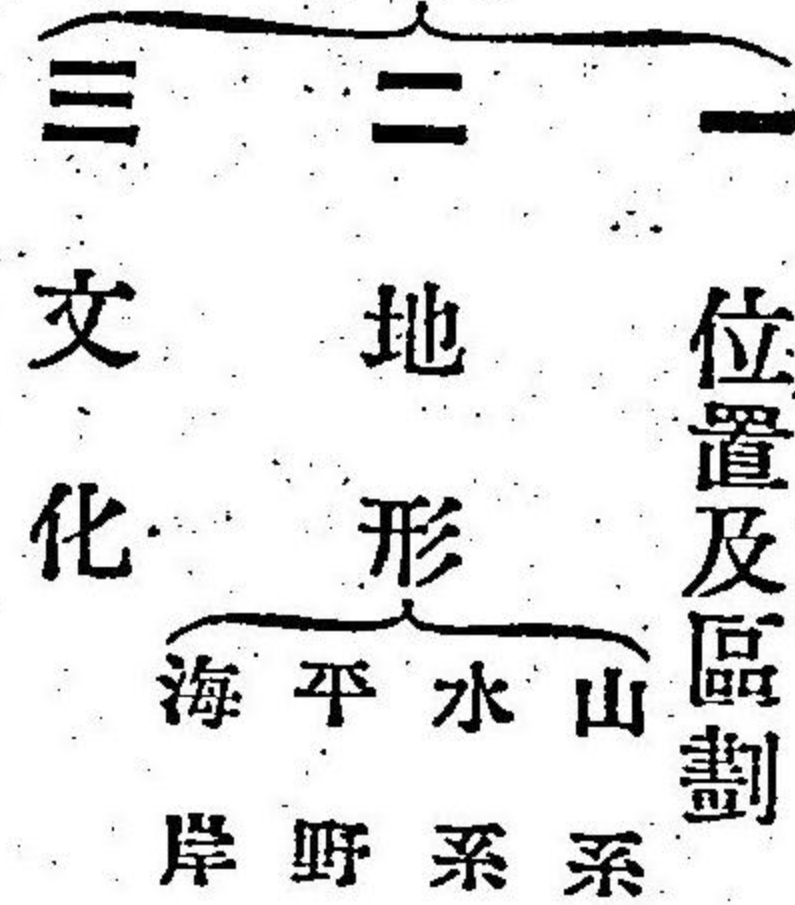 一 位置及區劃
二 地形
山系
水系
平野
海岸
三 文化